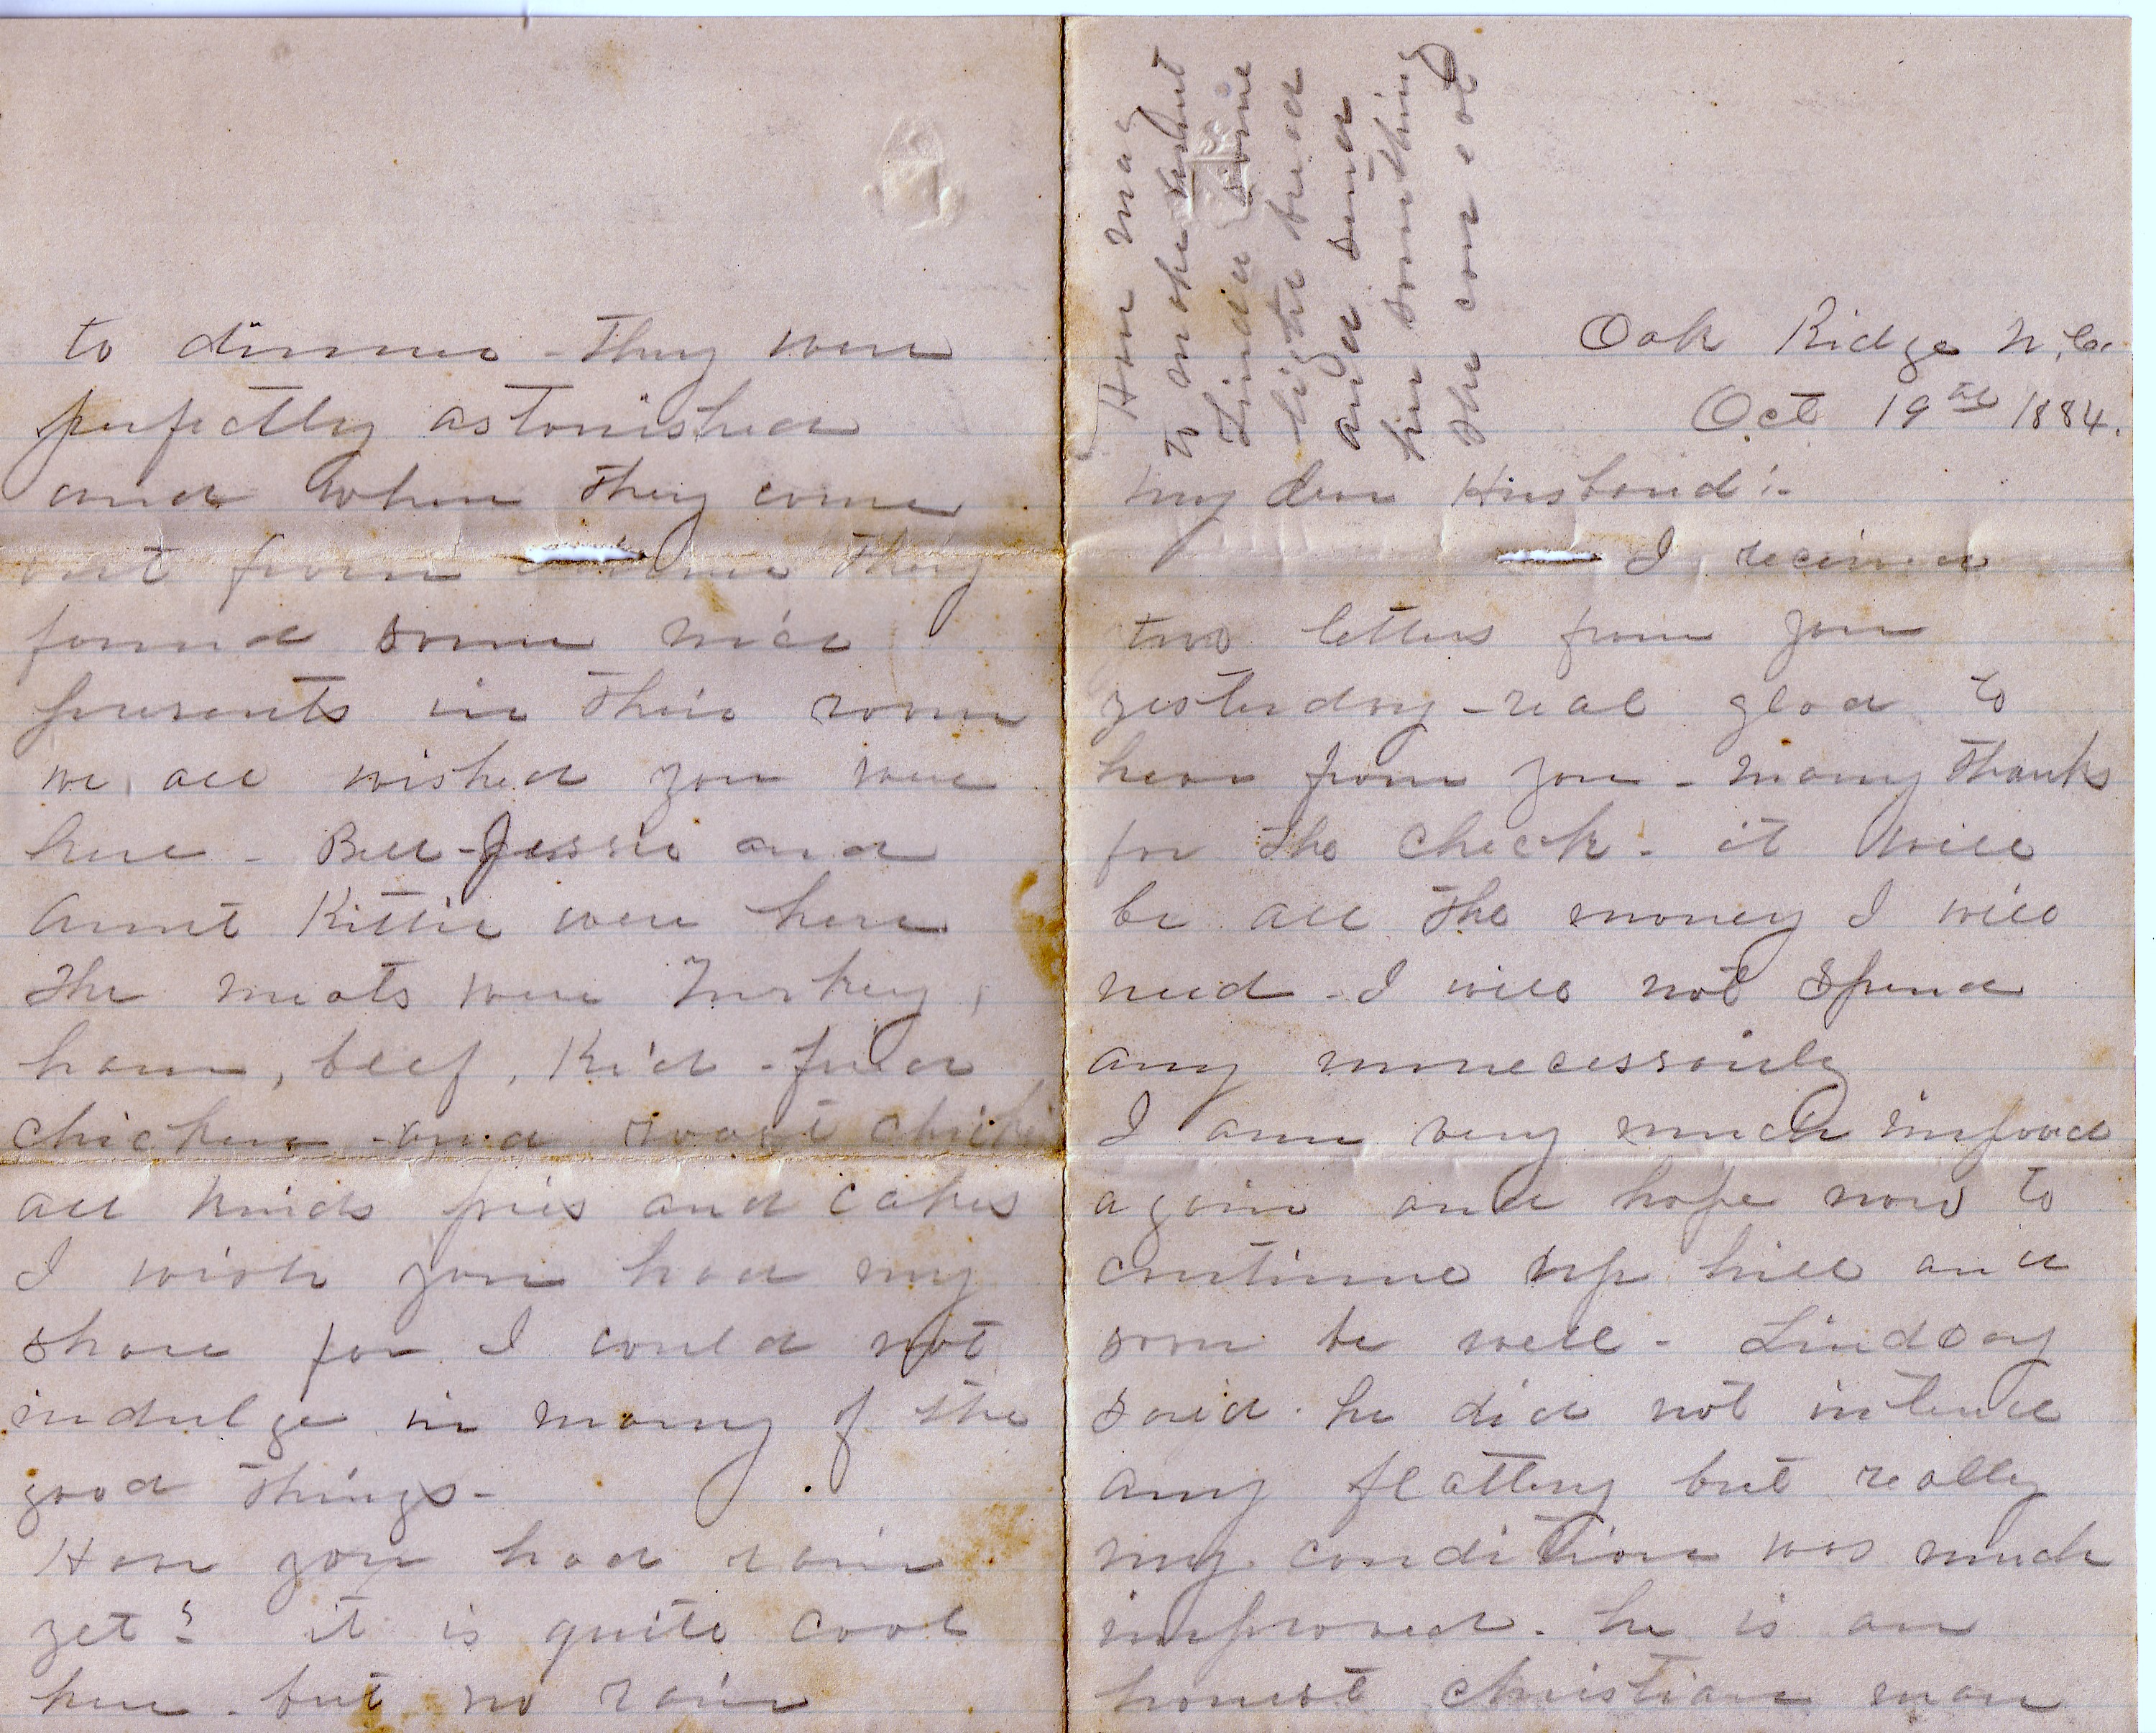 Oak Ridge N.C.
Oct 19th 1884.
My dear Husband:-
I received
two letters from you
yesterday - real glad to
hear from you - many thanks
for the check - it will
be all the money I will
need - I will not spend
any unnecessarily
I am very much improved
again and hope now to
continue up hill and
soon be well - Lindsay
said he did not intend
any flattery but really
my condition was much
improved - he is an
honest christian man
to dinner - They were
perfectly astonished
and when they come
out from dinner they
found some nice
presents in their room
we all wished you were
here - Bell - Jessie and
Aunt Kittie were here
The meats were Turkey,
ham, beef, Kid - fried
chicken - and roast chicken
all kinds pies and cakes
I wish you had my
share for I could not
indulge in many of the
good things -
Have you had rain
yet? it is quite cool
here - but no rain
Have Mag
to make
Linda some
light bread
and send
her something
she can eat